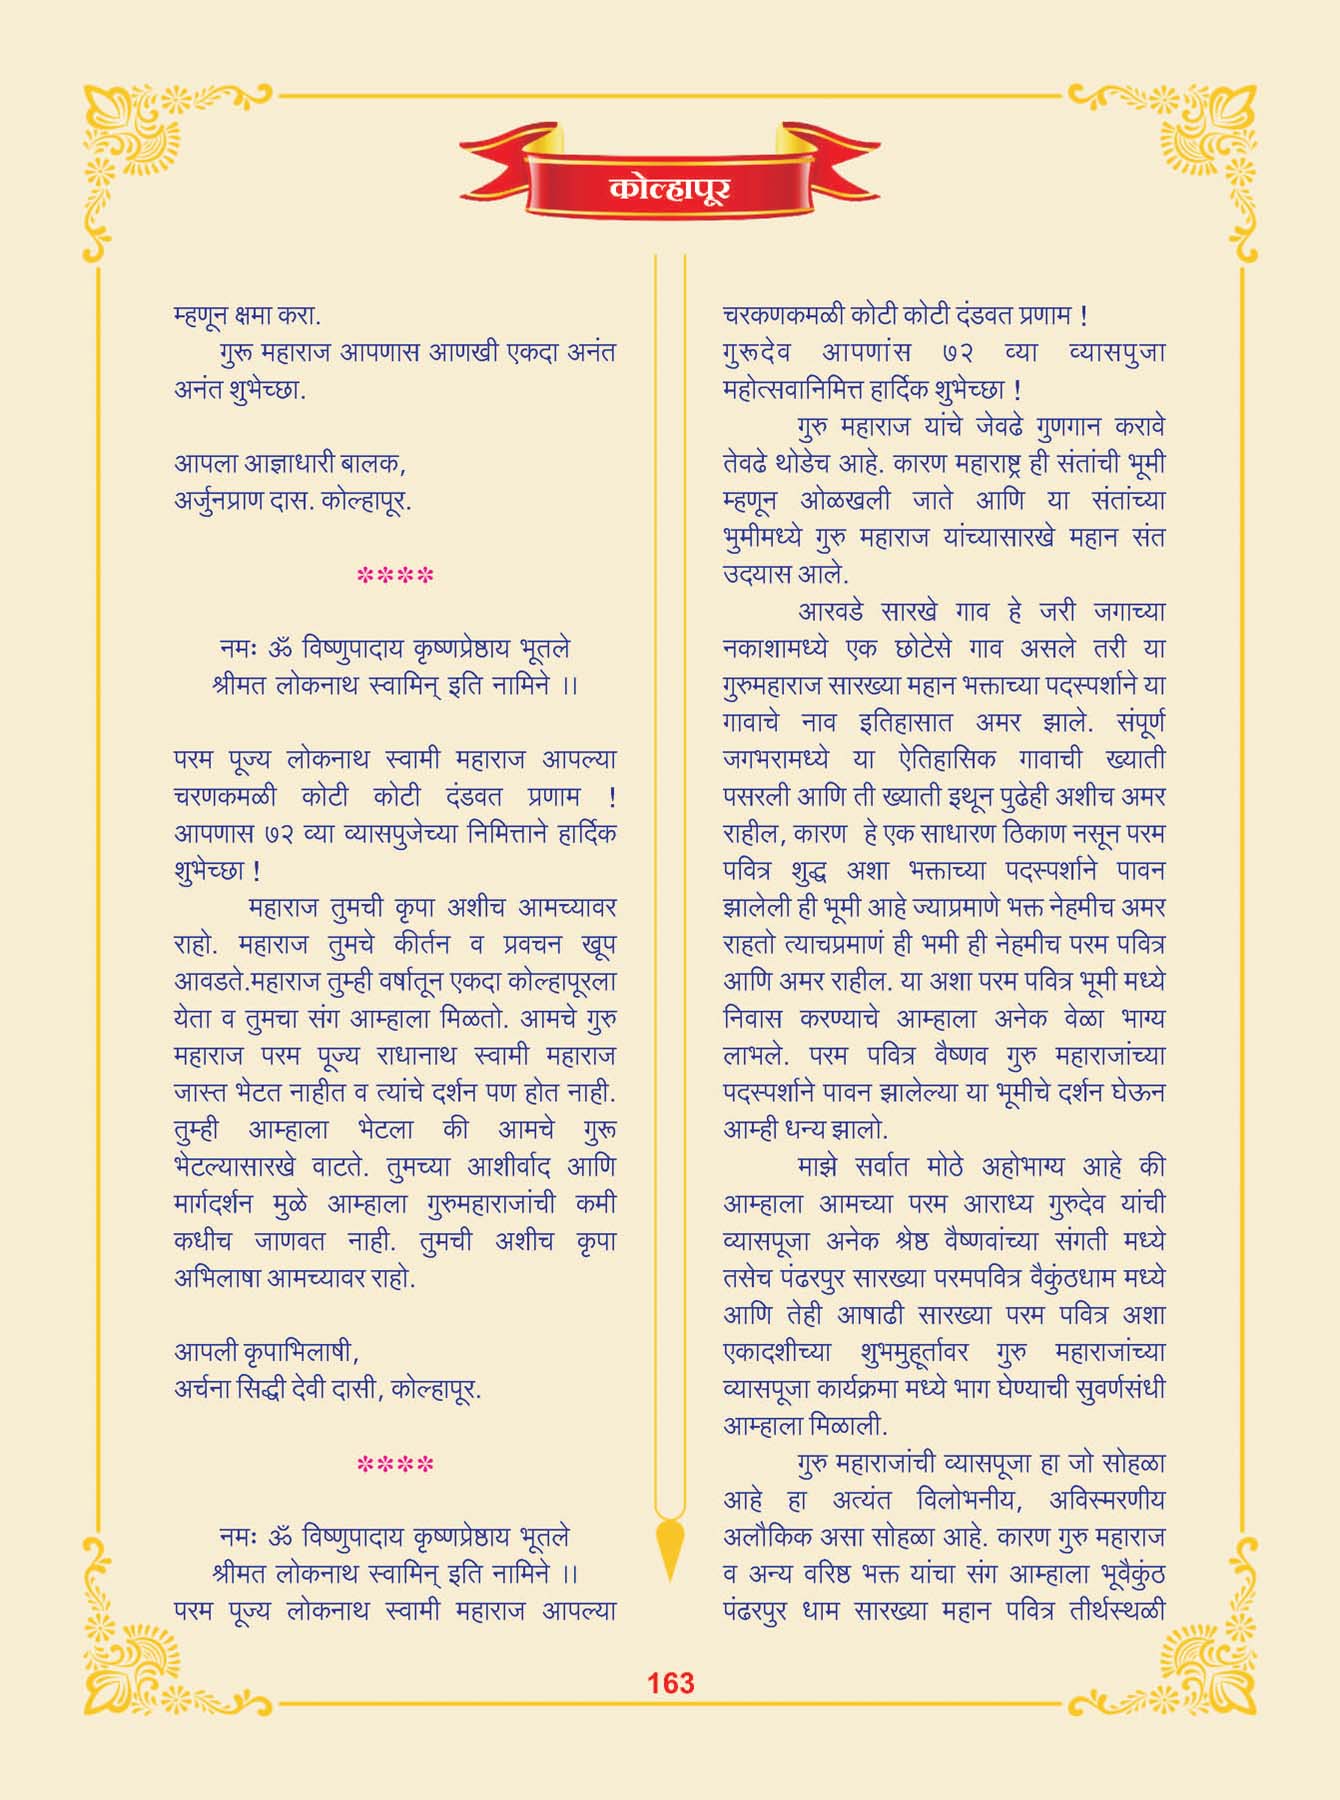 कोल्हापूर
म्हणून क्षमा करा.
गुरू महाराज आपणास आणखी एकदा अनंत
अनंत शुभेच्छा.
आपला आज्ञाधारी बालक,
अर्जुनप्राण दास. कोल्हापूर.
****
नमः ॐ विष्णुपादाय कृष्णप्रेष्ठाय भूतले
श्रीमत लोकनाथ स्वामिन् इति नामिने ।।
परम पूज्य लोकनाथ स्वामी महाराज आपल्या
चरणकमळी कोटी कोटी दंडवत प्रणाम !
आपणास ७२ व्या व्यासपुजेच्या निमित्ताने हार्दिक
शुभेच्छा !
महाराज तुमची कृपा अशीच आमच्यावर
राहो. महाराज तुमचे कीर्तन व प्रवचन खूप
आवडते.महाराज तुम्ही वर्षातून एकदा कोल्हापूरला
येता व तुमचा संग आम्हाला मिळतो. आमचे गुरु
महाराज परम पूज्य राधानाथ स्वामी महाराज
जास्त भेटत नाहीत व त्यांचे दर्शन पण होत नाही.
तुम्ही आम्हाला भेटला की आमचे गुरू
भेटल्यासारखे वाटते. तुमच्या आशीर्वाद आणि
मार्गदर्शन मुळे आम्हाला गुरुमहाराजांची कमी
कधीच जाणवत नाही. तुमची अशीच कृपा
अभिलाषा आमच्यावर राहो.
आपली कृपाभिलाषी,
अर्चना सिद्धी देवी दासी, कोल्हापूर.
****
नमः ॐ विष्णुपादाय कृष्णप्रेष्ठाय भूतले
श्रीमत लोकनाथ स्वामिन् इति नामिने ।।
परम पूज्य लोकनाथ स्वामी महाराज आपल्या
चरकणकमळी कोटी कोटी दंडवत प्रणाम !
गुरूदेव आपणांस ७२ व्या व्यासपुजा
महोत्सवानिमित्त हार्दिक शुभेच्छा !
गुरु महाराज यांचे जेवढे गुणगान करावे
तेवढे थोडेच आहे. कारण महाराष्ट्र ही संतांची भूमी
म्हणून ओळखली जाते आणि या संतांच्या
भुमीमध्ये गुरु महाराज यांच्यासारखे महान संत
उदयास आले.
आरवडे सारखे गाव हे जरी जगाच्या
नकाशामध्ये एक छोटेसे गाव असले तरी या
गुरुमहाराज सारख्या महान भक्ताच्या पदस्पर्शाने या
गावाचे नाव इतिहासात अमर झाले. संपूर्ण
जगभरामध्ये या ऐतिहासिक गावाची ख्याती
पसरली आणि ती ख्याती इथून पुढेही अशीच अमर
राहील, कारण हे एक साधारण ठिकाण नसून परम
पवित्र शुद्ध अशा भक्ताच्या पदस्पर्शाने पावन
झालेली ही भूमी आहे ज्याप्रमाणे भक्त नेहमीच अमर
राहतो त्याचप्रमाणं ही भमी ही नेहमीच परम पवित्र
आणि अमर राहील. या अशा परम पवित्र भूमी मध्ये
निवास करण्याचे आम्हाला अनेक वेळा भाग्य
लाभले. परम पवित्र वैष्णव गुरु महाराजांच्या
पदस्पर्शाने पावन झालेल्या या भूमीचे दर्शन घेऊन
आम्ही धन्य झालो.
माझे सर्वात मोठे अहोभाग्य आहे की
आम्हाला आमच्या परम आराध्य गुरुदेव यांची
व्यासपूजा अनेक श्रेष्ठ वैष्णवांच्या संगती मध्ये
तसेच पंढरपुर सारख्या परमपवित्र वैकुंठधाम मध्ये
आणि तेही आषाढी सारख्या परम पवित्र अशा
एकादशीच्या शुभमुहूर्तावर गुरु महाराजांच्या
व्यासपूजा कार्यक्रमा मध्ये भाग घेण्याची सुवर्णसंधी
आम्हाला मिळाली.
गुरु महाराजांची व्यासपूजा हा जो सोहळा
आहे हा अत्यंत विलोभनीय, अविस्मरणीय
अलौकिक असा सोहळा आहे. कारण गुरु महाराज
व अन्य वरिष्ठ भक्त यांचा संग आम्हाला भूवैकुंठ
पंढरपुर धाम सारख्या महान पवित्र तीर्थस्थळी
163